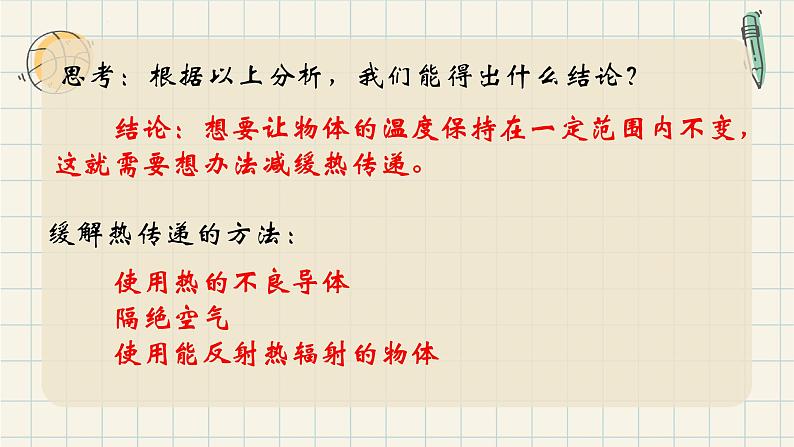 思考：根据以上分析，我们能得出什么结论？
结论：想要让物体的温度保持在一定范围内不变，
这就需要想办法减缓热传递。
缓解热传递的方法：
使用热的不良导体
隔绝空气
使用能反射热辐射的物体